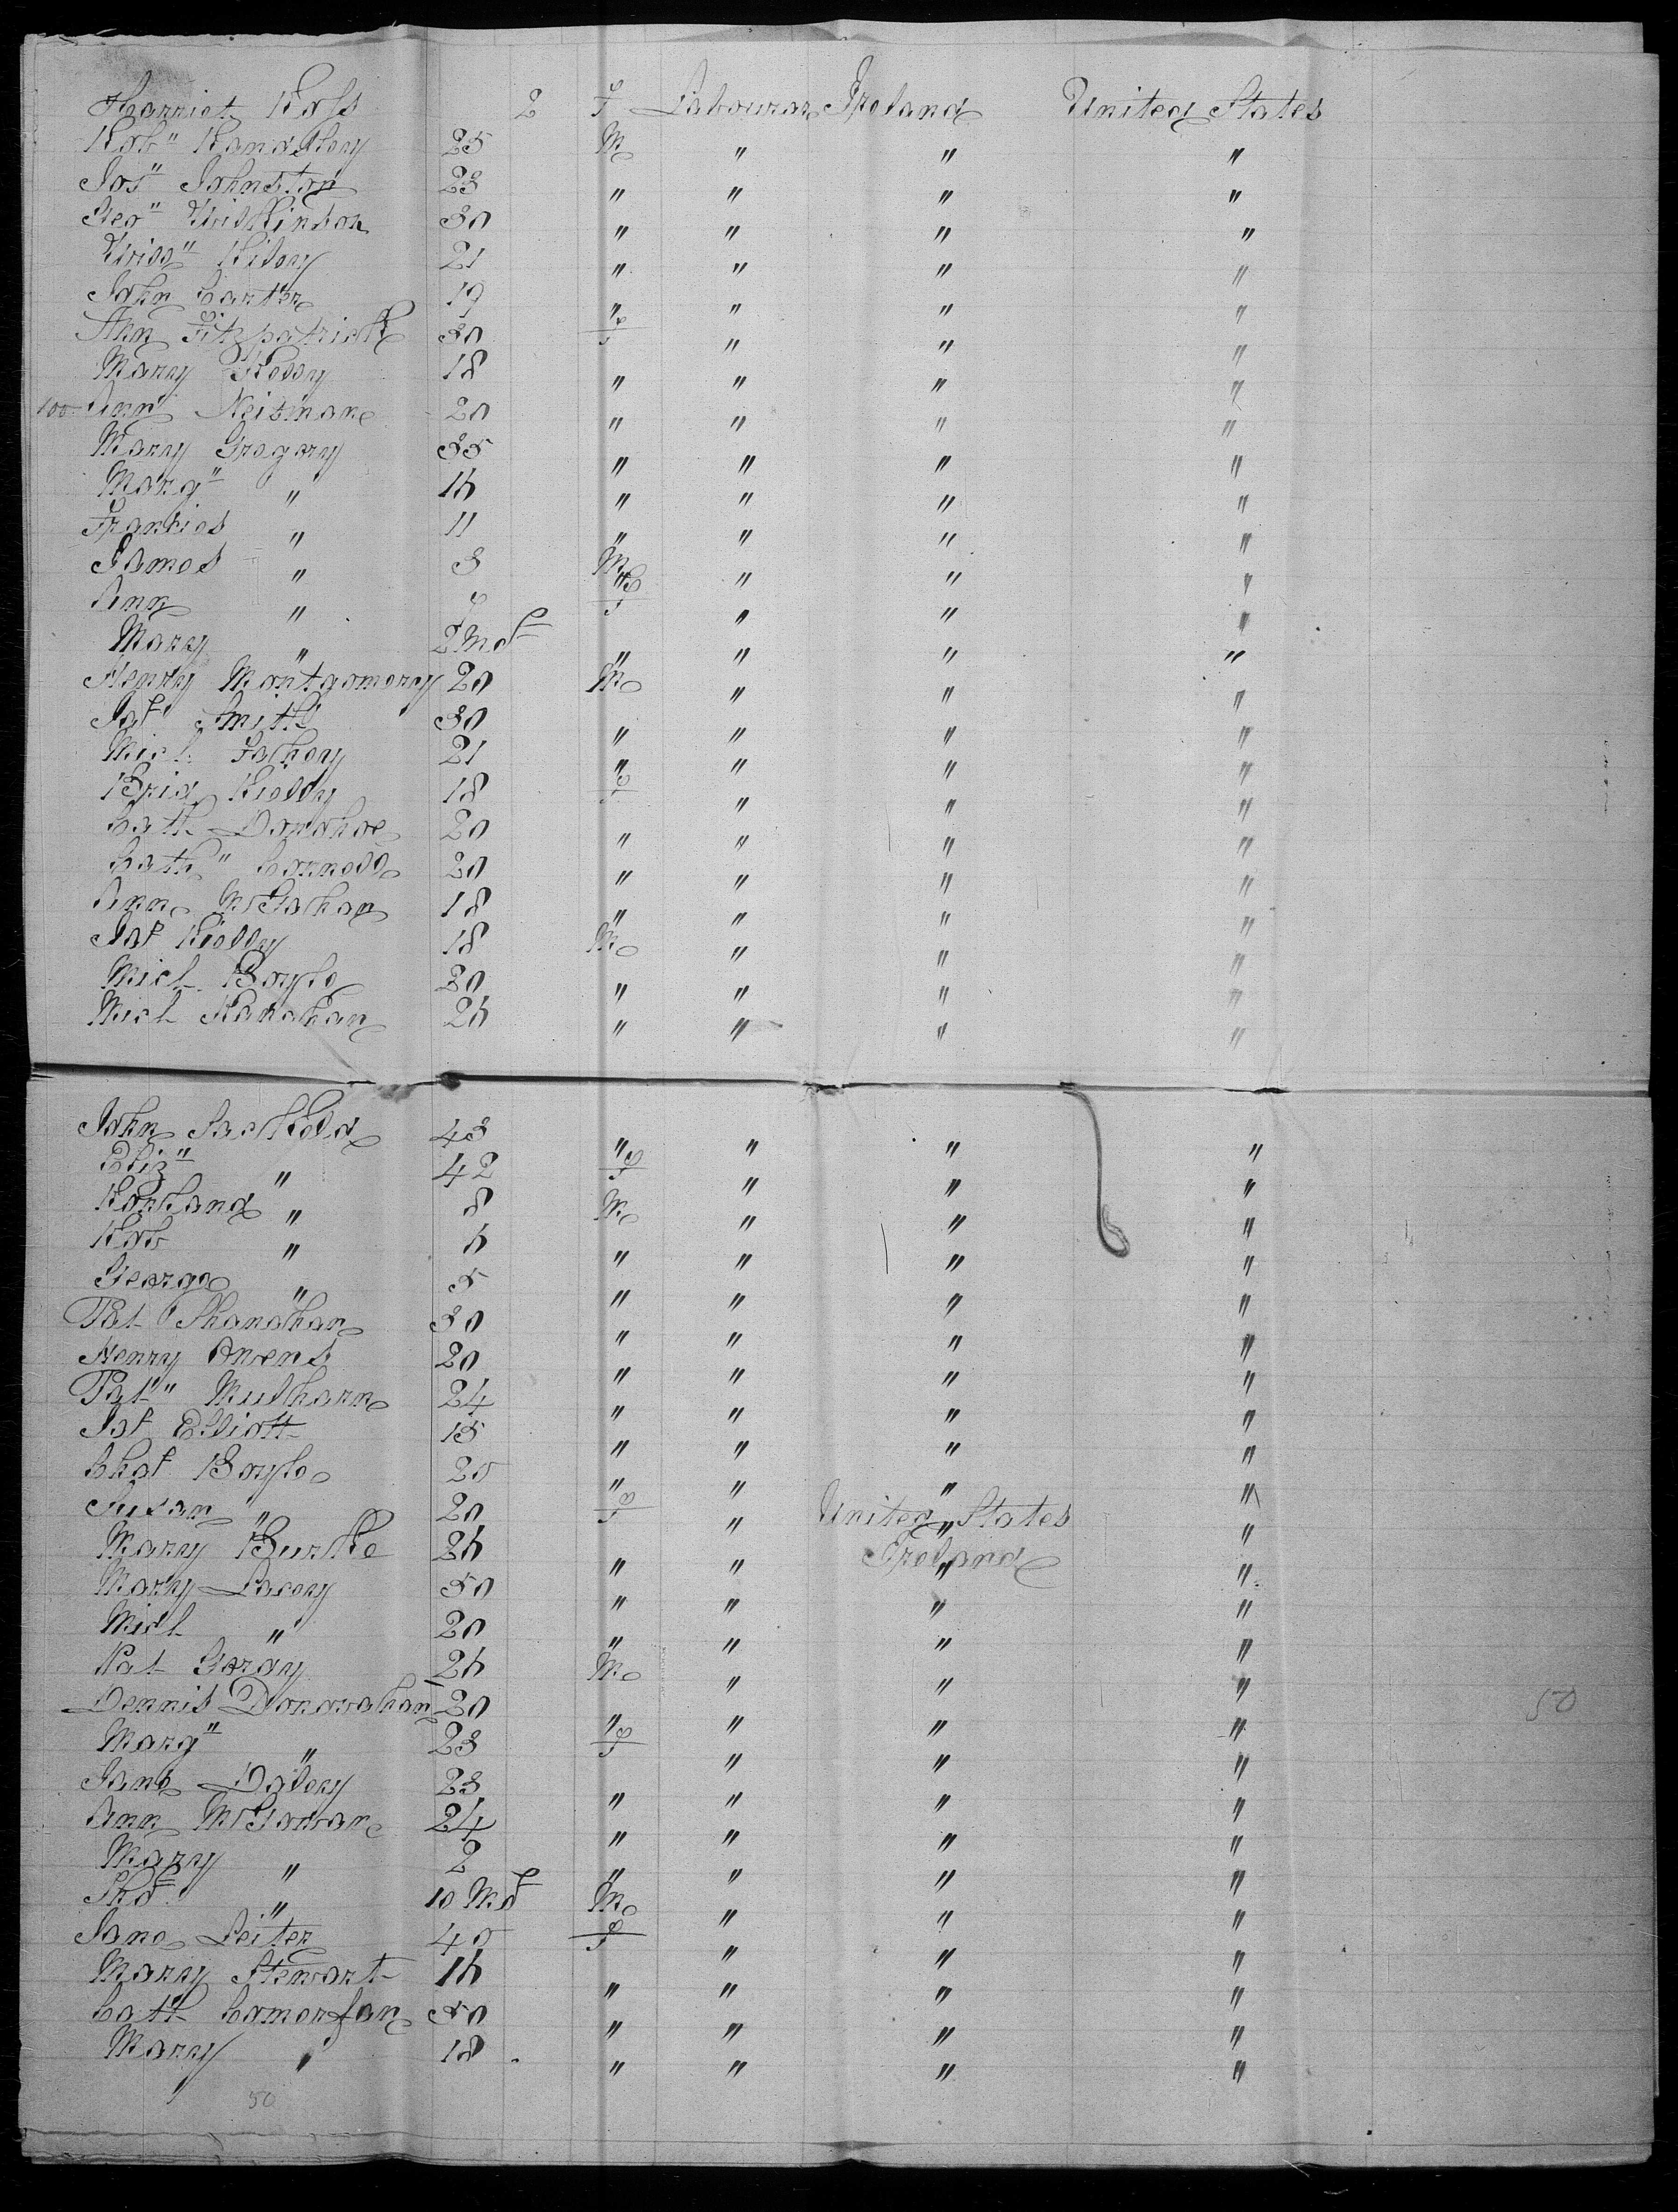 Harriet Ross 2 F Labourar Ireland United States
Rob" 25 M " " "
Jos" Johnston 23 " " " "
Geo" Willkinson 30 " " " "
Will" Riley 21 " " " "
John Carter 19 " " " "
Ann Fitzpatrick 30 F " " "
Marry Kelly 18 " " " "
100 Ann 20 " " " "
Marry Gregory 35 " " " "
Marg" " 16 " " " "
Francies " 11 " " " "
James " 3 M " " "
Ann " F " " "
Marry " 2 Mos " " " "
Henry Montgomery 20 M " " "
Jas Smith 30 " " " "
Micl Fahey 21 " " " "
Brid Rielly 18 F " " "
Cath Donahoe 20 " " " "
Cath" Connell 20 " " " "
Ann McGahan 18 " " " "
Jas Rielly 18 M " " "
Micl Boyle 20 " " " "
Micl 26 " " " "
John 43 " " " "
Eliz" " 42 F " " "
Rowland " 8 M " " "
Rob " 6 " " " "
George " 5 " " " "
Pat Shanahan 30 " " " "
Henry Owens 20 " " " "
Pat" Mulharn 24 " " " "
Jas Elliott 15 " " " "
Chas Boyle 20 " " " "
Susan " 20 F " United States "
Mary Burke 26 " " Ireland "
Marry Lacey 50 " " " "
Micl " 20 " " " "
Pat 26 M " " "
Dennis Donovahan 20 " " " "
Marg" " 23 F " " "
Jane Daley 23 " " " "
Ann McGowan 24 " " " "
Mary " 2 " " " "
Thos " 10 Mos M " " "
Jane Leiter 40 F " " "
Marry Stewart 16 " " " "
Cath Comerfan 50 " " " "
Marry " 18 " " " "
50
50